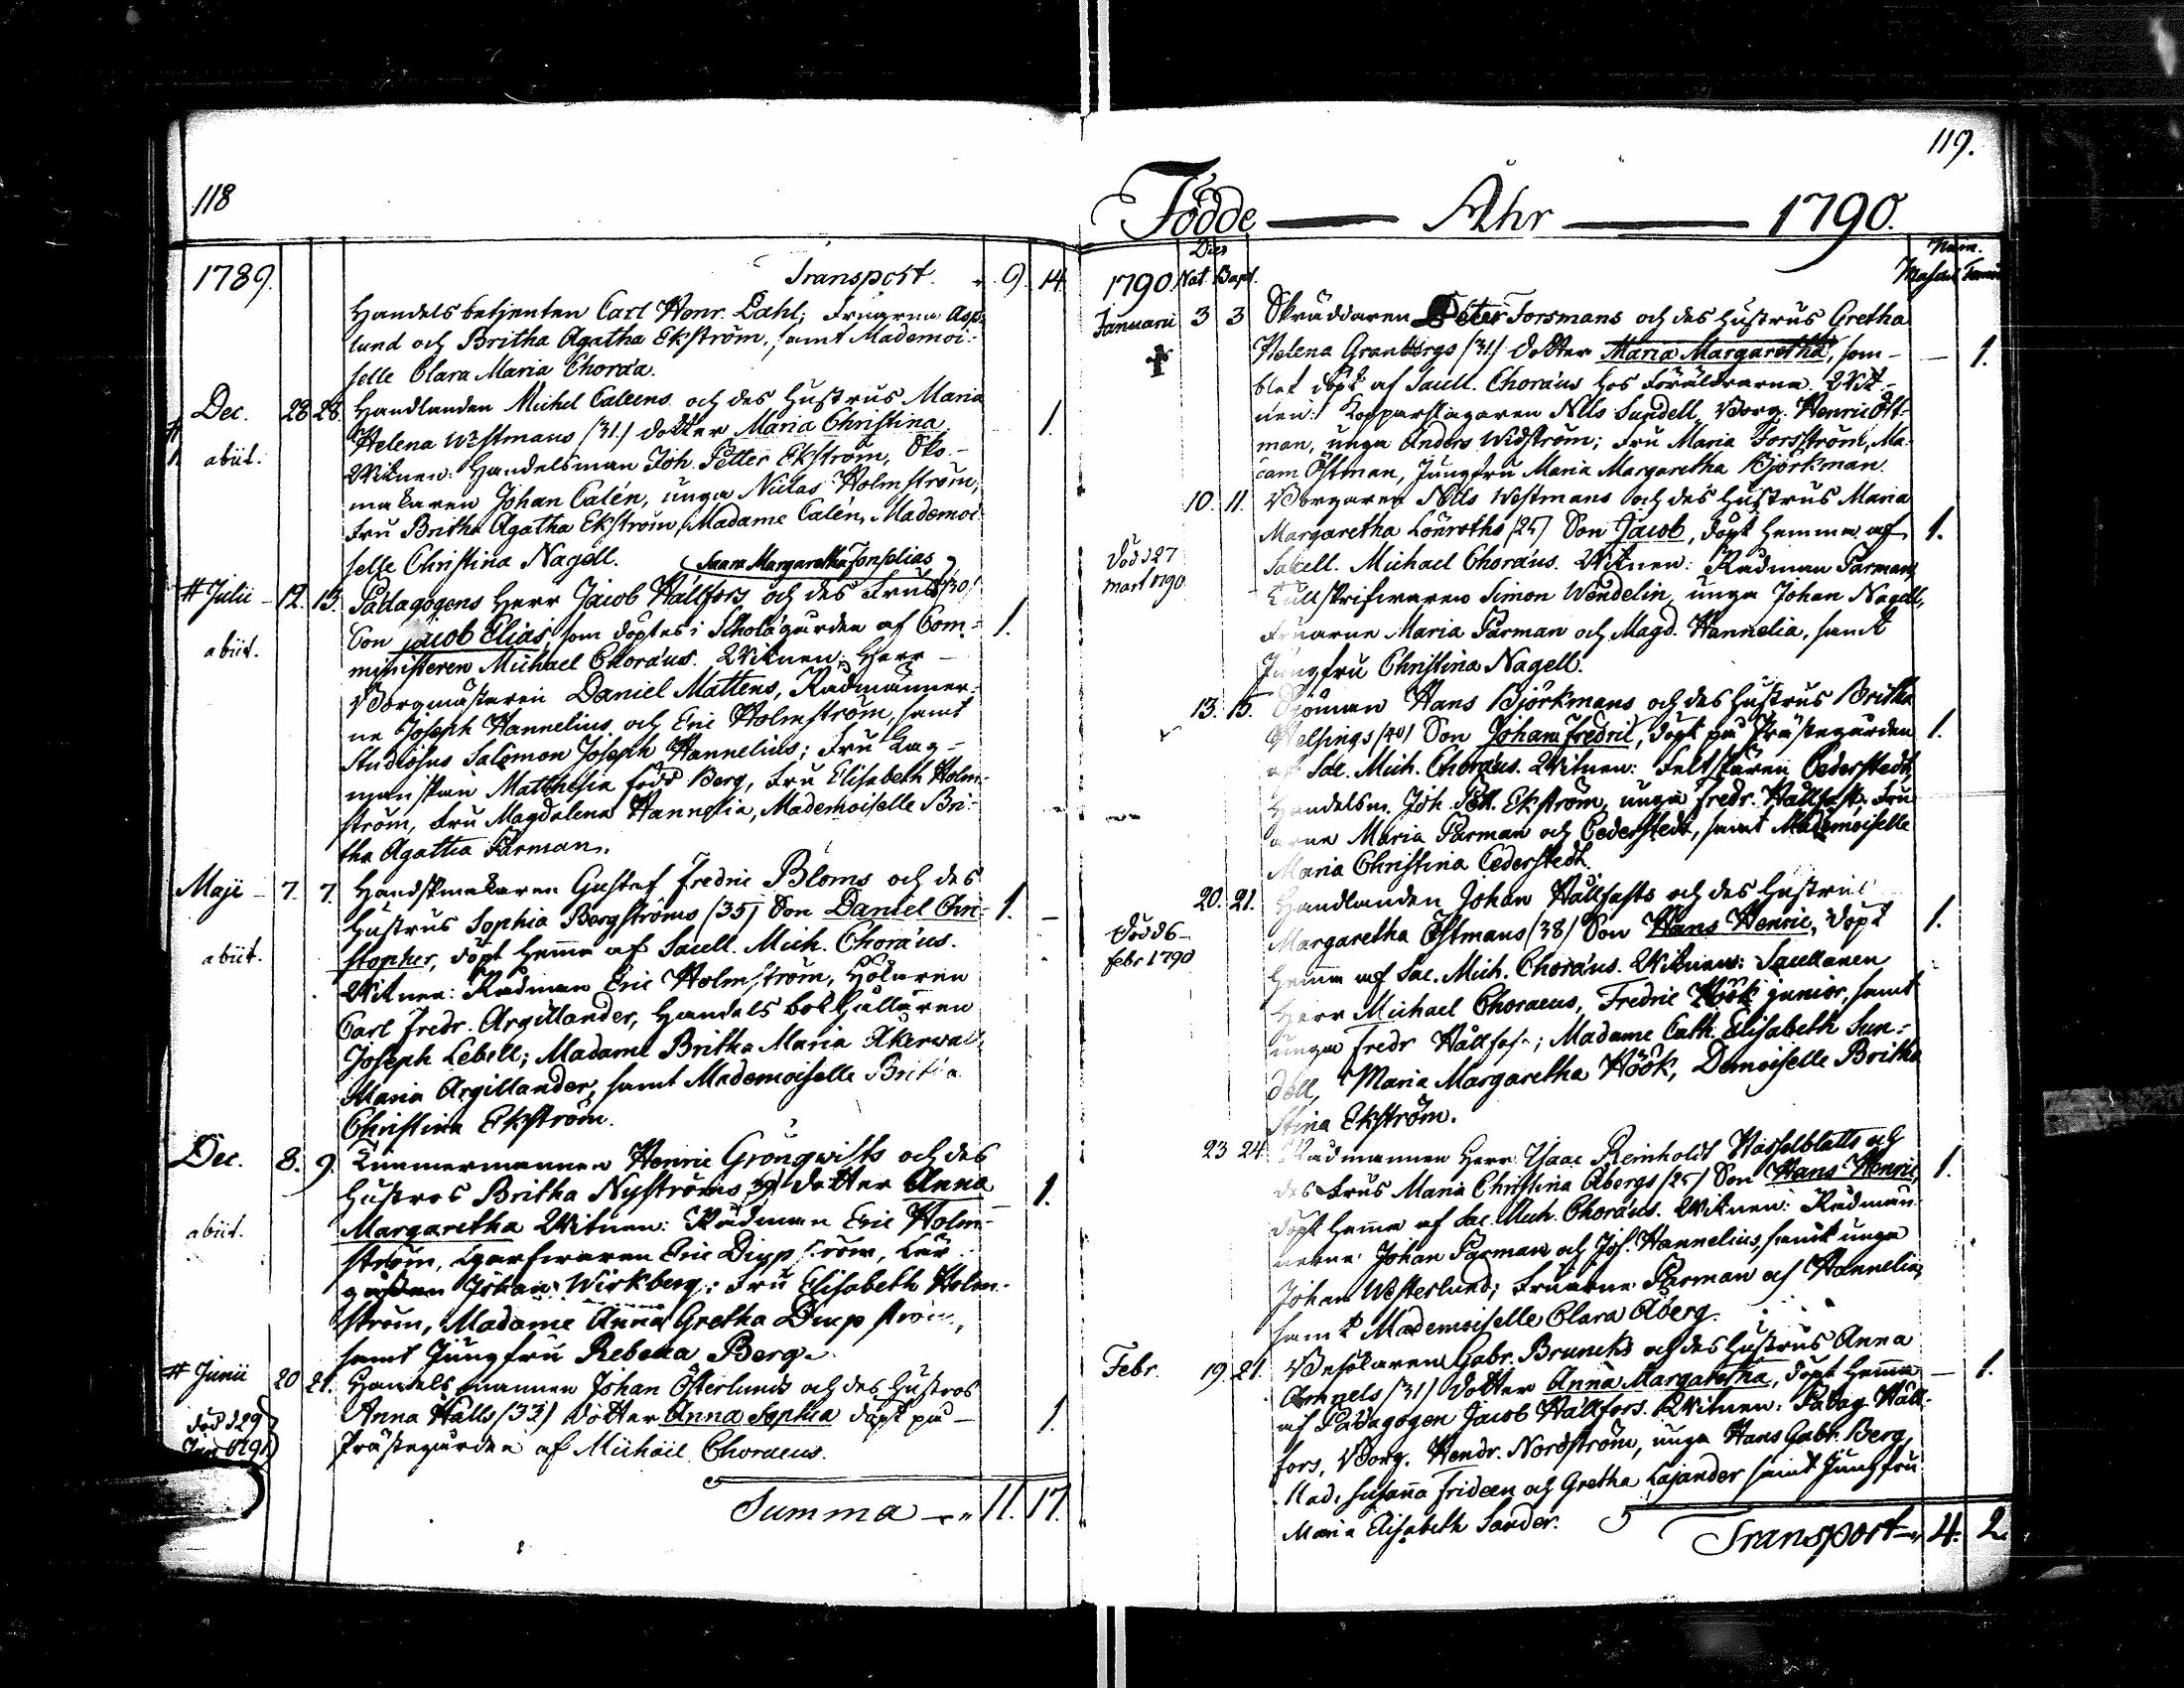 118
1789. Transport. 9. 14.
Handelsbetjenten Carl Henr. Dahl; Fruarna Asp-
lund och Britha Agatha Ekström, samt Mademoi-
selle Clara Maria Choræa.
Dec. 28 28. Handlanden Michel Caleens och des Hustrus Maria
Helena Westmans (31.) dotter Maria Christina. 1.
abiit.
Witnen: Handelsman Joh. Petter Ekström, Sko-
makaren Johan Calén, unga Niclas Holmström,
Fru Britha Agatha Ekström, Madame Calén, Mademoi-
selle Christina Nagell. Saara Margaretha Jonselias
# Julii 12. 13. Pædagogens Herr Jacob Hällfors och des Frus (30)
Son Jacob Elias, som döptes i Scholægården af Com- 1.
abiit.
ministeren Michael Choræus. Witnen: Herr
Borgmästaren Daniel Mattens, Rådmänner-
ne Joseph Hannelius och Eric Holmström, samt
Studiosus Salomon Joseph Hannelius; Fru Lag-
manskan Matthesia född Berg, Fru Elisabeth Holm-
ström, Fru Magdalena Hannelia, Mademoiselle Bri-
tha Agatha Farman.
Maji 7. 7. Handskmakaren Gustaf Fredric Bloms och des
Hustrus Sophia Bergströms (35) Son Daniel Chri- 1.
stopher, döpt hemma af Sacell. Mich. Choræus.
abiit.
Witnen: Rådman Eric Holmström, Hökaren
Carl Fredr. Argillander, Handels bokhållaren
Joseph Lebell; Madame Britha Maria Åkerwall
Maria Argillander, samt Mademoiselle Britha
Christina Ekström.
Dec. 8. 9. Timmermannen Henric Grönqwists och des
Hustros Britha Nyströms (39) dotter Anna 1.
Margaretha Witnen: Rådman Eric Holm-
abiit.
ström, Garfwaren Eric Diupström, Lär
gåssen Johan Wirkberg: Fru Elisabeth Holm-
ström, Madame Anna Gretha Diupström,
samt Jungfru Rebecca Berg.
# Junii 20 21. Handelsmannen Johan Österlunds och des Hustros
Anna Hälls (33) dotter Anna Sophia döpt på 1.
död d 29
Prästegården af Michäel Choraeus.
Summa 11. 17.
119.
Födde Åhr 1790.
Dies Num.
1790 Nat. Bapt. Mascul Famin
Januarii 3 3 Skräddaren Peter Forsmans och des Hustrus Gretha
Helena Granbergs (31.) dotter Maria Margaretha, som 1.
blef döpt af Sacell. Choræus hos Föräldrarna. Wit-
nen: Kopparslagaren Nils Sundell, Borg. Henric Öst-
man, unga Anders Widström; Fru Maria Forsström, Ma-
dam Östman, Jungfru Maria Margaretha Björkman.
10. 11. Borgaren Nils Westmans och des Hustrus Maria
Margaretha Lönroths (25) Son Jacob, döpt hemma af 1.
död d 27
Mart 1790.
Sacell. Michael Choræus. Witnen: Rådman Farman,
Tullskrifwaren Simon Wendelin, unga Johan Nagell,
Fruarne Maria Farman och Magd. Hannelia, samt
Jungfru Christina Nagell.
13. 15. Sjöman Hans Björkmans och des Hustrus Britha
Helsings (40) Son Johan Fredric, döpt på Prästegården 1.
af Sac. Mich. Choræus. Witnen: Feltskären Cederstedt,
Handelsm. Joh. Pett. Ekström, unga Fredr. Hällfast; Fru
arne Maria Farman och Cederstedt, samt Mademoiselle
Maria Christina Cederstedt.
20. 21. Handlanden Johan Hällfasts och des Hustrus
Margaretha Östmans (38) Son Hans Henric, döpt 1.
död d 6
Febr 1790
hemma af Sac. Mich. Choræus. Witnen: Sacellanen
Herr Michael Choraeus, Fredric Höök junior, samt
unga Fredr Hällfast; Madame Cath. Elisabeth Sun-
dell, Maria Margaretha Höök, Demoiselle Britha
Stina Ekström.
23 24 Rådmannen Herr Isaac Reinholdt Hasselblatts och
des Frus Maria Christina Åbergs (25) Son Hans Henric, 1.
döpt hemma af Sac. Mich. Choræus. Witnen: Rådmän-
nerne Johan Farman och Jos. Hannelius, samt unga
Johan Westerlund; Fruarne Farman och Hannelia,
samt Mademoiselle Clara Åberg.
Febr. 19. 21. Besökaren Gabr. Bruncks och des Hustrus Anna
(31) dotter Anna Margaretha, döpt hemma 1.
af Pædagogen Jacob Hällfors. Witnen: Pædag. Häll-
fors, Borg. Hendr. Nordström, unga Hans Gabr. Berg,
Mad. Susanna Frideen och Gretha Cajander samt Jungfru
Maria Elisabeth Sander.
Transport 4. 2.